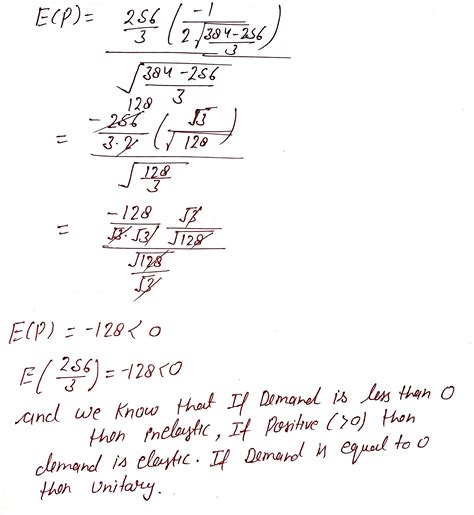 E(P) = 256/3 ( -1 / 2√(384-256)/3 )
√(384-256)/3
128
= -256/3·2 ( √3/√128 )
√128/3
= -128/√3·√3 √3/√128
√128/√3
E(P) = -128 < 0
E(256/3) = -128 < 0
and we know that If Demand is less than 0
then inelastic, If Positive (>0) then
demand is elastic. If Demand is equal to 0
then Unitary.